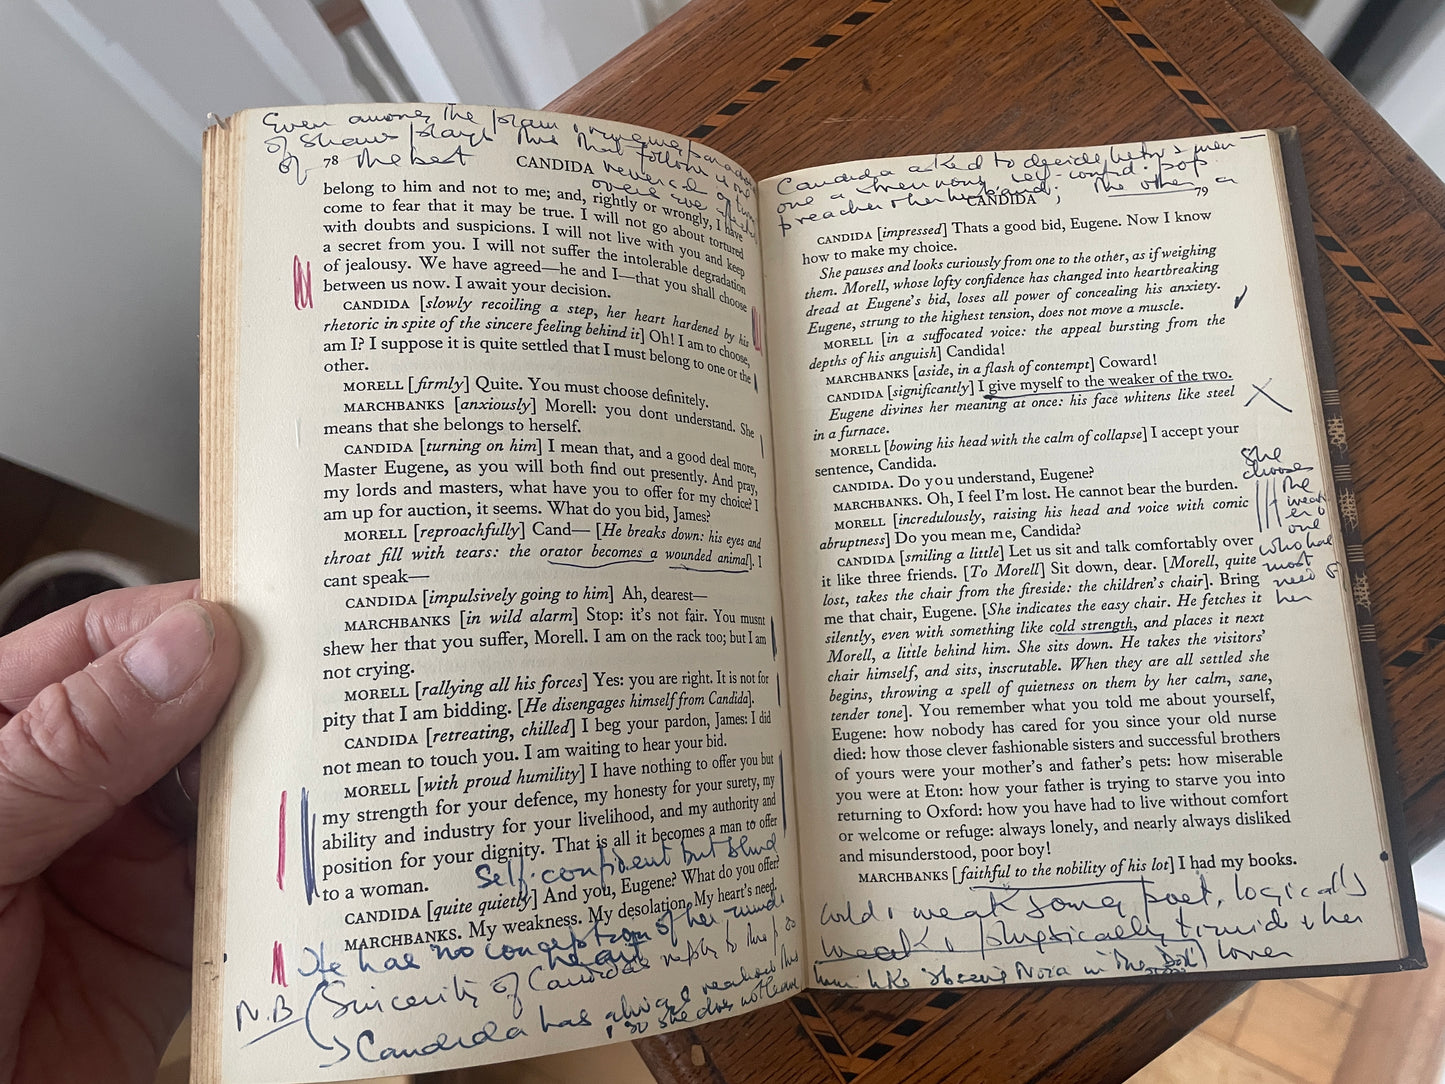 Even among the brain paradoxes
of Shaws plays this that follows is one
of the best
reversal of
78 CANDIDA
belong to him and not to me; and, rightly or wrongly, I have
come to fear that it may be true. I will not go about tortured
with doubts and suspicions. I will not live with you and keep
a secret from you. I will not suffer the intolerable degradation
of jealousy. We have agreed—he and I—that you shall choose
between us now. I await your decision.
CANDIDA [slowly recoiling a step, her heart hardened by his
rhetoric in spite of the sincere feeling behind it] Oh! I am to choose,
am I? I suppose it is quite settled that I must belong to one or the
other.
MORELL [firmly] Quite. You must choose definitely.
MARCHBANKS [anxiously] Morell: you dont understand. She
means that she belongs to herself.
CANDIDA [turning on him] I mean that, and a good deal more,
Master Eugene, as you will both find out presently. And pray,
my lords and masters, what have you to offer for my choice? I
am up for auction, it seems. What do you bid, James?
MORELL [reproachfully] Cand— [He breaks down: his eyes and
throat fill with tears: the orator becomes a wounded animal]. I
cant speak—
CANDIDA [impulsively going to him] Ah, dearest—
MARCHBANKS [in wild alarm] Stop: it's not fair. You musnt
shew her that you suffer, Morell. I am on the rack too; but I am
not crying.
MORELL [rallying all his forces] Yes: you are right. It is not for
pity that I am bidding. [He disengages himself from Candida].
CANDIDA [retreating, chilled] I beg your pardon, James: I did
not mean to touch you. I am waiting to hear your bid.
MORELL [with proud humility] I have nothing to offer you but
my strength for your defence, my honesty for your surety, my
ability and industry for your livelihood, and my authority and
position for your dignity. That is all it becomes a man to offer
to a woman.
Self-confident but blind
CANDIDA [quite quietly] And you, Eugene? What do you offer?
MARCHBANKS. My weakness. My desolation. My heart's need.
He has no conception of her mind
heart
N.B (Sincerity of Candidas reply to this
Candida has always realised this
so she does not leave
Candida asked to decide betw's men
one a strenuous self-confid. pop
preacher & her husband; the other a
CANDIDA 79
CANDIDA [impressed] Thats a good bid, Eugene. Now I know
how to make my choice.
She pauses and looks curiously from one to the other, as if weighing
them. Morell, whose lofty confidence has changed into heartbreaking
dread at Eugene's bid, loses all power of concealing his anxiety.
Eugene, strung to the highest tension, does not move a muscle.
MORELL [in a suffocated voice: the appeal bursting from the
depths of his anguish] Candida!
MARCHBANKS [aside, in a flash of contempt] Coward!
CANDIDA [significantly] I give myself to the weaker of the two.
Eugene divines her meaning at once: his face whitens like steel
in a furnace.
MORELL [bowing his head with the calm of collapse] I accept your
sentence, Candida.
CANDIDA. Do you understand, Eugene?
MARCHBANKS. Oh, I feel I'm lost. He cannot bear the burden.
MORELL [incredulously, raising his head and voice with comic
abruptness] Do you mean me, Candida?
CANDIDA [smiling a little] Let us sit and talk comfortably over
it like three friends. [To Morell] Sit down, dear. [Morell, quite
lost, takes the chair from the fireside: the children's chair]. Bring
me that chair, Eugene. [She indicates the easy chair. He fetches it
silently, even with something like cold strength, and places it next
Morell, a little behind him. She sits down. He takes the visitors'
chair himself, and sits, inscrutable. When they are all settled she
begins, throwing a spell of quietness on them by her calm, sane,
tender tone]. You remember what you told me about yourself,
Eugene: how nobody has cared for you since your old nurse
died: how those clever fashionable sisters and successful brothers
of yours were your mother's and father's pets: how miserable
you were at Eton: how your father is trying to starve you into
returning to Oxford: how you have had to live without comfort
or welcome or refuge: always lonely, and nearly always disliked
and misunderstood, poor boy!
MARCHBANKS [faithful to the nobility of his lot] I had my books.
She
chooses
the
weak
er
one
who has
most
need of
her
weak young poet, logically
weak & physically timid & her
lover
like Nora in the Doll's